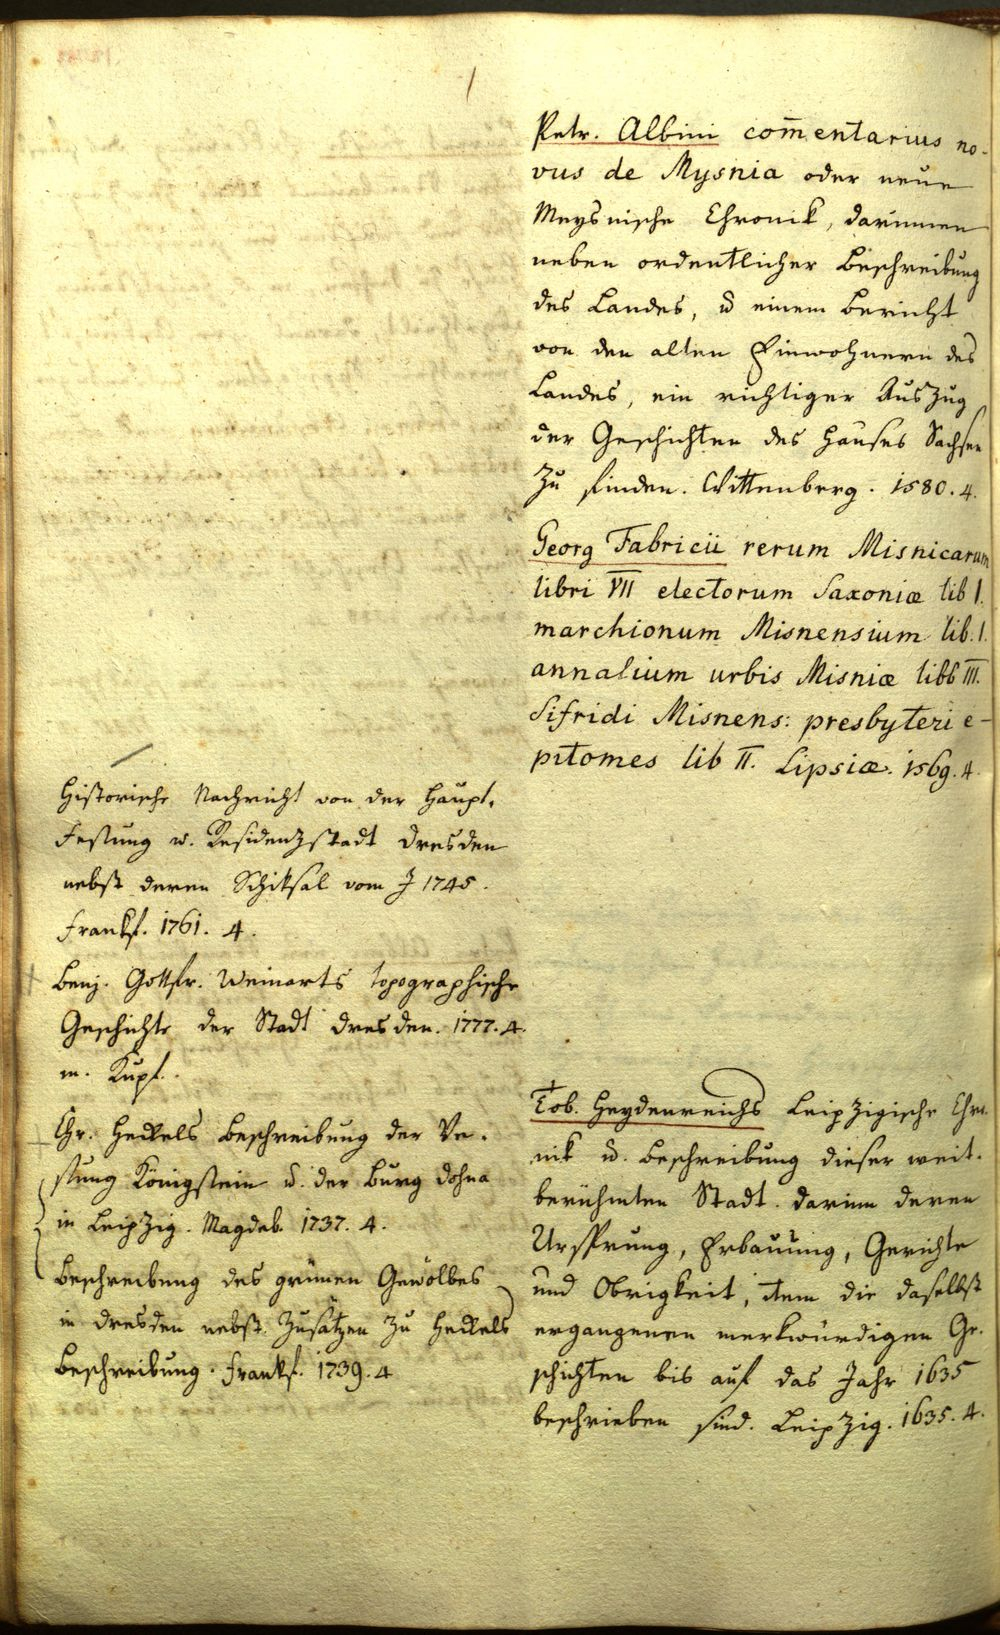 Petr. Albini com̄entarius no-
vus de Mysnia oder neue
Meysnische Chronik, darinnen
neben ordentlicher Beschreibung
des Landes, u einem Bericht
von den alten Einwohnern des
Landes, ein richtiger Auszug
der Geschichten des Hauses Sachsen
zu finden. Wittenberg. 1580. 4.
Georg Fabricii rerum Misnicarum
libri VII electorum Saxoniæ lib I.
marchionum Misnensium lib. I.
annalium urbis Misniæ libb III.
Sifridi Misnens: presbyteri e-
pitomes lib II. Lipsiæ. 1569. 4.
Historische Nachricht von der Haupt-
Festung u. Residenzstadt Dresden
nebst deren Schiksal vom J 1745.
Frankf. 1761. 4.
Benj. Gottfr. Weinarts topographische
Geschichte der Stadt Dresden. 1777. 4.
m. Kupf.
Chr. Heckels Beschreibung der Ve-
stung Königstein u. der Burg Dohna
in Leipzig. Magdeb. 1737. 4.
Beschreibung des grünen Gewölbes
in Dresden nebst Zusätzen zu Heckels
Beschreibung. Frankf. 1739. 4
Tob. Heydenreichs Leipzigische Chro-
nik u. Beschreibung dieser weit-
berühmten Stadt. darinn deren
Ursprung, Erbauung, Gerichte
und Obrigkeit, item die daselbst
ergangenen merkwürdigen Ge-
schichten bis auf das Jahr 1635
beschrieben sind. Leipzig. 1635. 4.